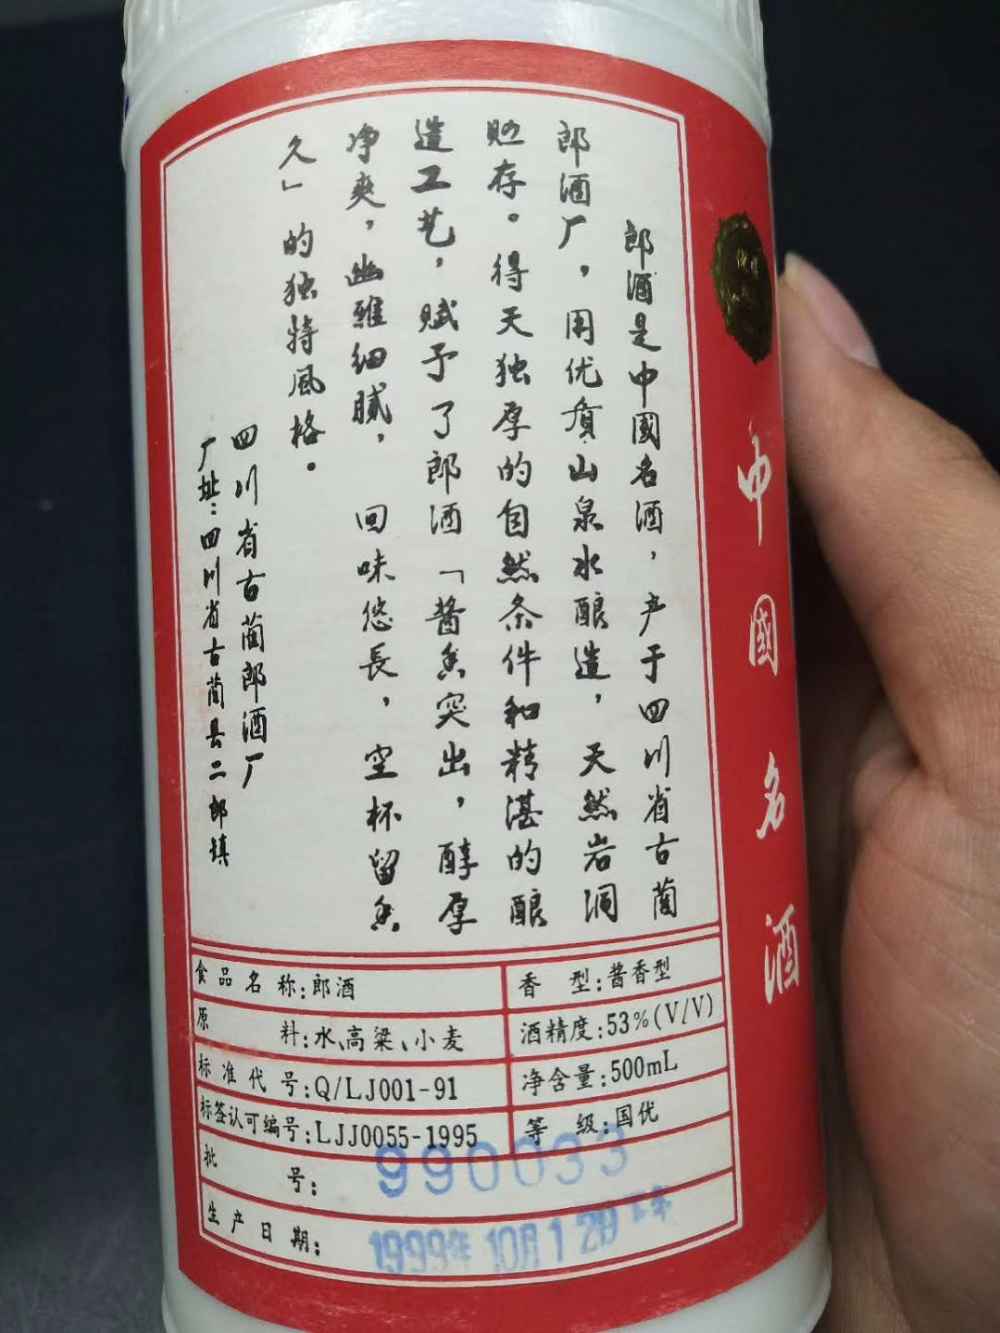 郎酒是中國名酒，产于四川省古蔺
郎酒厂，用优质山泉水酿造，天然岩洞
贮存。得天独厚的自然条件和精湛的酿
造工艺，赋予了郎酒「酱香突出，醇厚
净爽，幽雅细腻，回味悠長，空杯留香
久」的独特風格。
四川省古蔺郎酒厂
厂址：四川省古蔺县二郎镇
中國名酒
食品名称：郎酒
香型：酱香型
原料：水、高粱、小麦
酒精度：53%(V/V)
标准代号：Q/LJ001-91
净含量：500mL
标签认可编号：LJJ0055-1995
等级：国优
批号：990033
生产日期：1999年10月12日